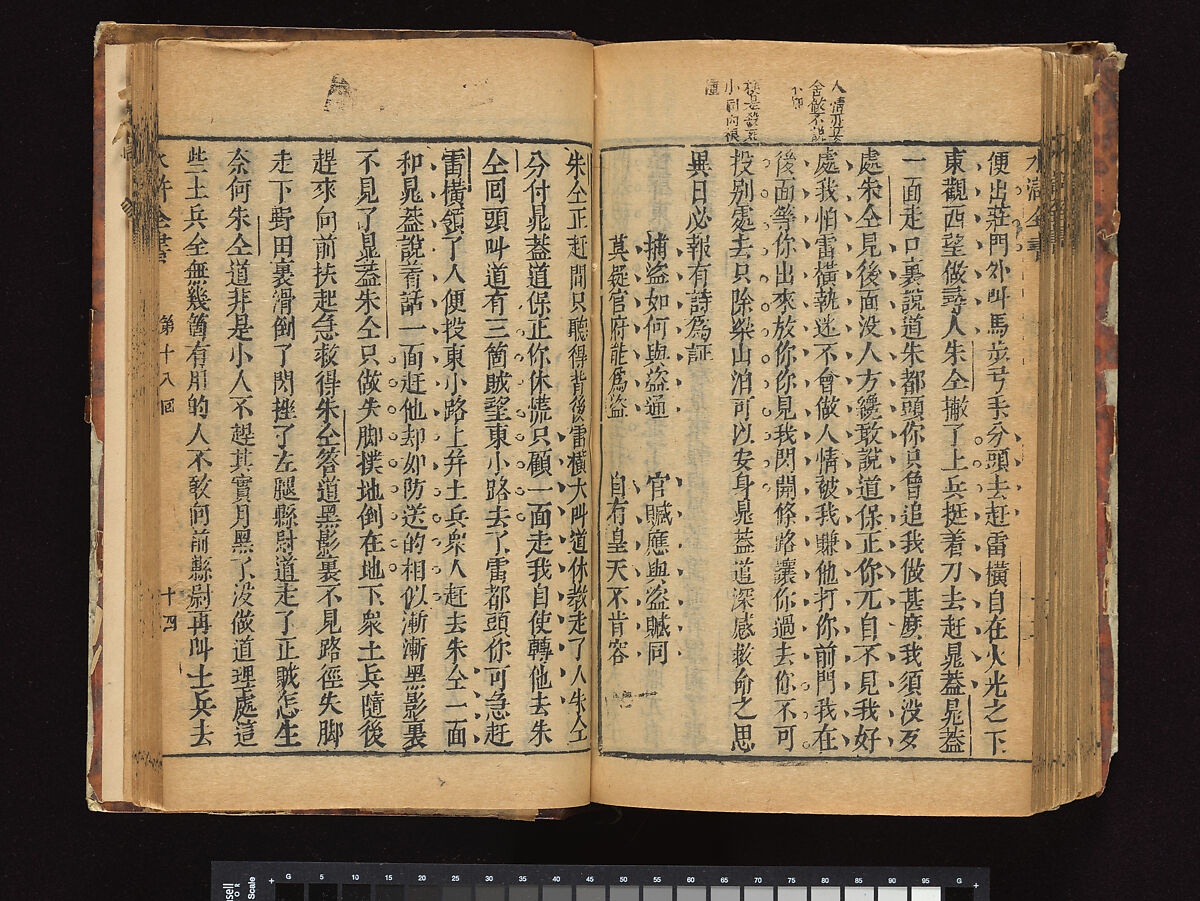 水滸全書
便出莊門外叫馬步弓手分頭去赶雷橫自在火光之下
東觀西望做尋人朱仝撇了土兵挺着刀去赶晁蓋晁蓋
一面走口裏說道朱都頭你只管追我做甚麽我須沒歹
處朱仝見後面没人方纔敢說道保正你兀自不見我好
處我怕雷橫執迷不會做人情被我賺他打你前門我在
後面等你出來放你你見我閃開條路讓你過去你不可
投別處去只除梁山泊可以安身晁蓋道深感救命之恩
異日必報有詩爲証
捕盜如何與盜通 官贓應與盜贓同
莫疑官府能爲盜 自有皇天不肯容
朱仝正赶間只聽得背後雷橫大叫道休教走了人朱仝
分付晁蓋道保正你休慌只顧一面走我自使轉他去朱
仝囘頭叫道有三箇賊望東小路去了雷都頭你可急赶
雷橫領了人便投東小路上并土兵衆人赶去朱仝一面
和晁蓋說着話一面赶他却如防送的相似漸漸黑影裏
不見了晁蓋朱仝只做失脚撲地倒在地下衆土兵隨後
趕來向前扶起急救得朱仝答道黑影裏不見路徑失脚
走下野田裏滑倒了閃挫了左腿縣尉道走了正賊怎生
奈何朱仝道非是小人不趕其實月黑了没做道理處這
些土兵全無幾箇有用的人不敢向前縣尉再叫土兵去
水滸全書 第十八囘 十四